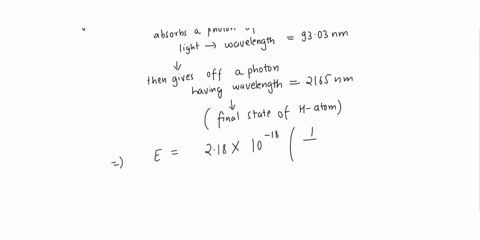 absorbs a photon of
light → wavelength = 93.03 nm
↓
then gives off a photon
having wavelength = 2165 nm
↓
( final state of H-atom)
=) E = 2.18 × 10^-18 ( 1